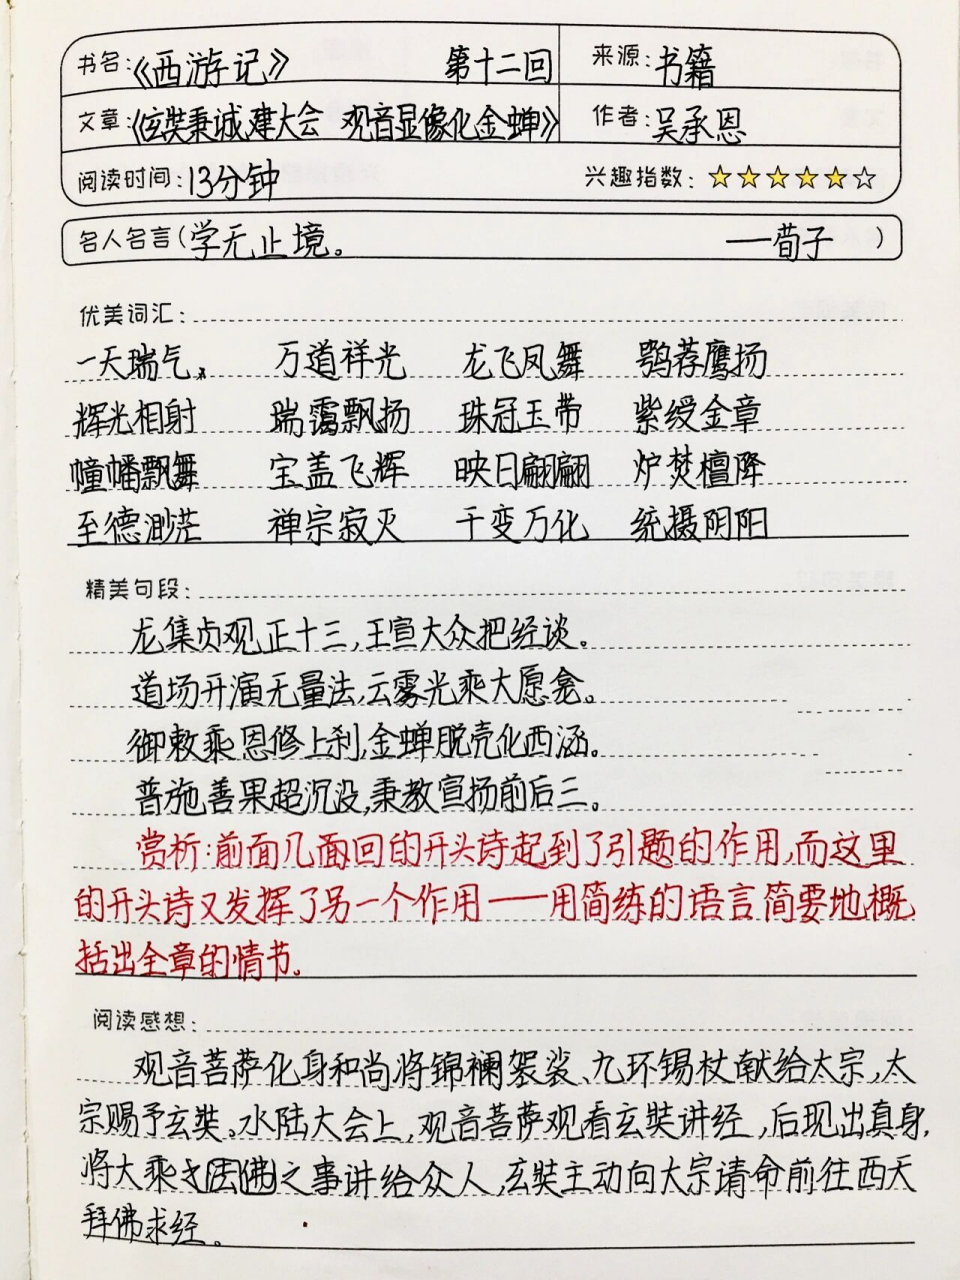 书名:《西游记》 第十二回 来源:书籍
文章:《玄奘秉诚建大会 观音显像化金蝉》 作者:吴承恩
阅读时间:13分钟 兴趣指数:
名人名言(学无止境。 ——荀子 )
优美词汇:
一天瑞气 万道祥光 龙飞凤舞 鹗荐鹰扬
辉光相射 瑞霭飘扬 珠冠玉带 紫绶金章
幢幡飘舞 宝盖飞辉 映日翩翩 炉焚檀降
至德渺茫 禅宗寂灭 千变万化 统摄阴阳
精美句段:
龙集贞观正十三,王宣大众把经谈。
道场开演无量法,云雾光乘大愿龛。
御敕乘恩修上刹,金蝉脱壳化西涵。
普施善果超沉没,秉教宣扬前后三。
赏析:前面几面回的开头诗起到了引题的作用,而这里
的开头诗又发挥了另一个作用——用简练的语言简要地概
括出全章的情节。
阅读感想:
观音菩萨化身和尚将锦襕袈裟、九环锡杖献给太宗,太
宗赐予玄奘。水陆大会上,观音菩萨观看玄奘讲经,后现出真身,
将大乘法佛之事讲给众人,玄奘主动向太宗请命前往西天
拜佛求经。